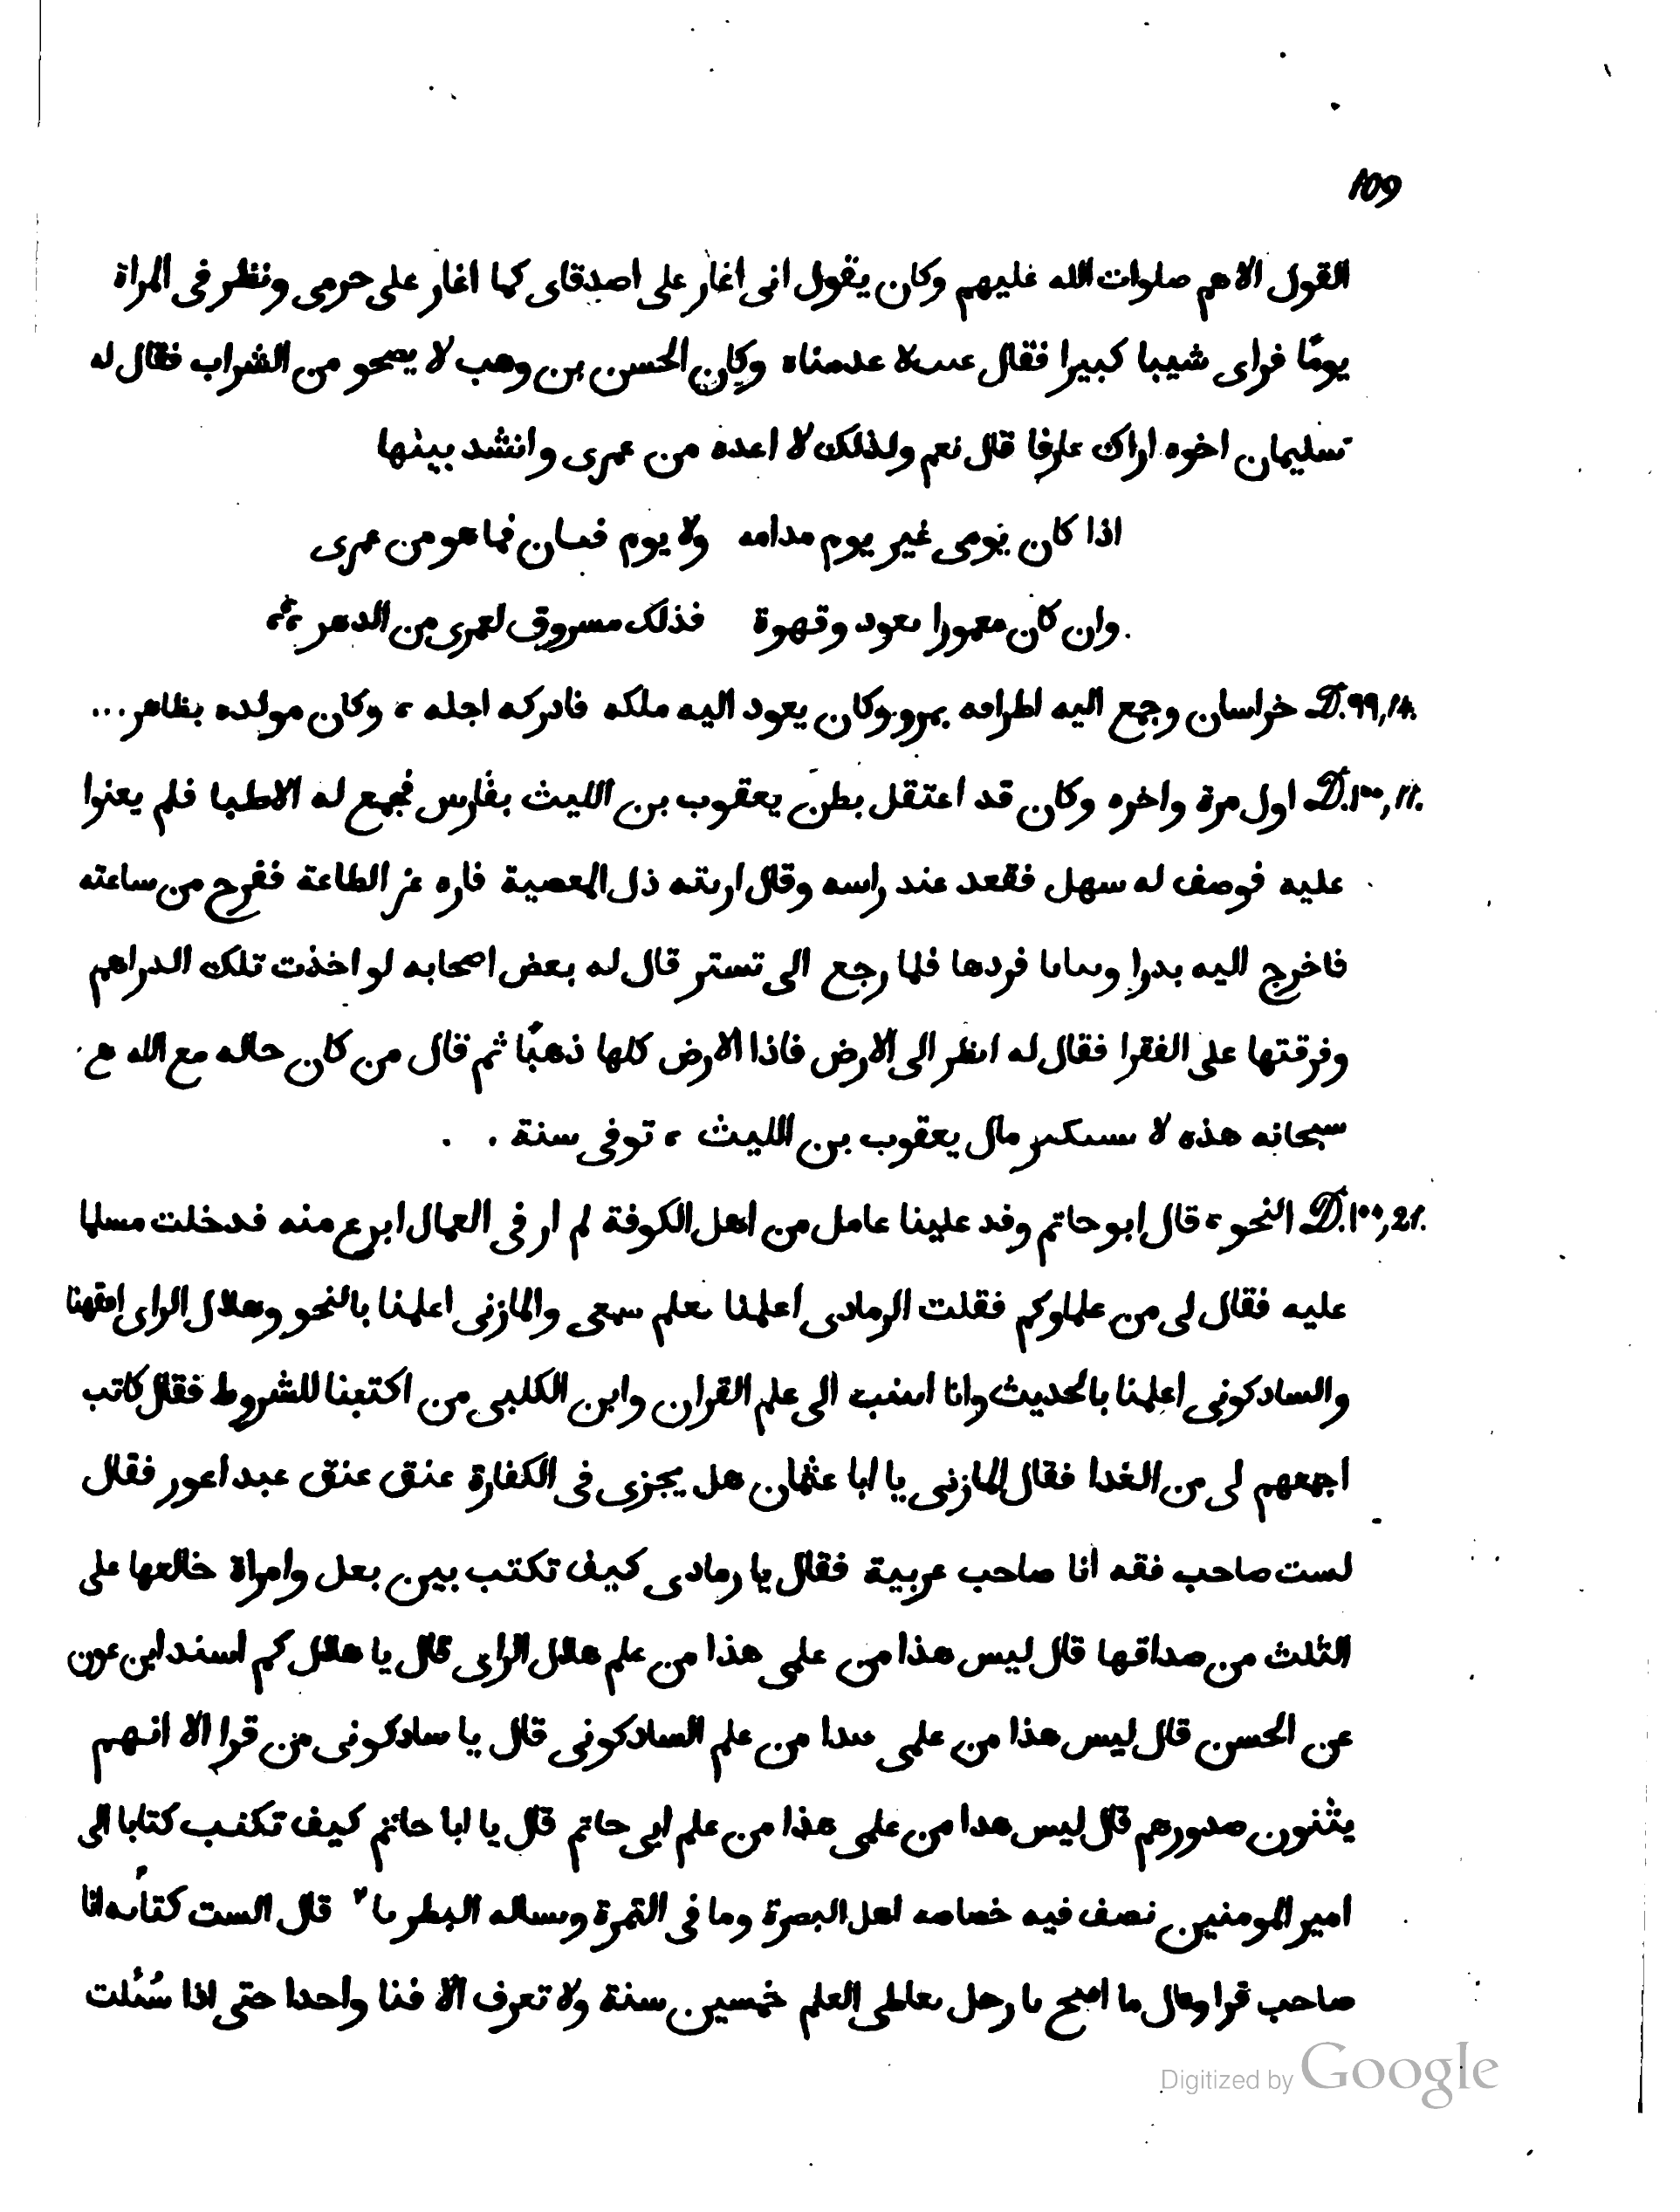 109
القول الا هم صلوات الله عليهم وكان يقول انى اغار على اصدقاى كما اغار على حرمى ونظر فى المراة
يومًا فراى شيبا كبيرا فقال عىىلا عدمناه وكان الحسن بن وهب لا يصحو من الشراب فقال له
سليمان اخوه اراك عارفا قال نعم ولذلك لا اعده من عمرى وانشد بينها
اذا كان يومى غير يوم مدامه ولا يوم فىىان فما هو من عمرى
وان كان معمورا ىعود وقهوة فذلك مسروق لعمرى من الدهر
D.99,14. خراسان وجمع اليه اطرافه بمرو وكان يعود اليه ملكه فادركه اجله ، وكان مولده بظاهر...
D.100,11. اول مرة واخره وكان قد اعتقل بطن يعقوب بن الليث بفارس فجمع له الاطبا فلم يعنوا
عليه فوصف له سهل فقعد عند راسه وقال اريته ذل المعصية فاره عز الطاعة ففرح من ساعته
فاخرج اليه بدرا وىىاىا فردها فلما رجع الى تستر قال له بعض اصحابه لو اخذت تلك الدراهم
وفرقتها على الفقرا فقال له انظر الى الارض فاذا الارض كلها ذهبًا ثم قال من كان حاله مع الله
سبحانه هذه لا ىسىكىر مال يعقوب بن الليث ، توفى سنة . .
D.100,21. النحو ، قال ابو حاتم وفد علينا عامل من اهل الكوفة لم ار فى العمال ابرع منه فدخلت مسلما
عليه فقال لى من علماوكم فقلت الرمادى اعلمنا ىعلم سىعى والمازنى اعلمنا بالنحو وهلال الراى افقهنا
والسادكونى اعلمنا بالحديث وانا انسب الى علم القران وابن الكلبى من اكتبنا للشروط فقال كاتب
اجمعهم لى من الغدا فقال المازنى يا ابا عثمان هل يجزى فى الكفارة عنق عنق عبد اعور فقال
لست صاحب فقه انا صاحب عربية فقال يا رمادى كيف تكتب بين بعل وامراة خالعها على
الثلث من صداقها قال ليس هذا من علمى هذا من علم هلال الراى قال يا هلال كم اسند ابن عون
عن الحسن قال ليس هذا من علمى هدا من علم السادكونى قال يا سادكونى من قرا الا انهم
يثنون صدورهم قال ليس هدا من علمى هذا من علم ابى حاتم قال يا ابا حاتم كيف تكتب كتابا الى
امير المومنين نصف فيه خصاصه اهل البصرة وما فى الثمرة وىساله النظر ىا قال الست كتاىه انا
صاحب قرا وقال ما اقبح ىا رجل ىعاطى العلم خمسين سنة ولا تعرف الا فنا واحدا حتى اذا سُئلت
Digitized by Google